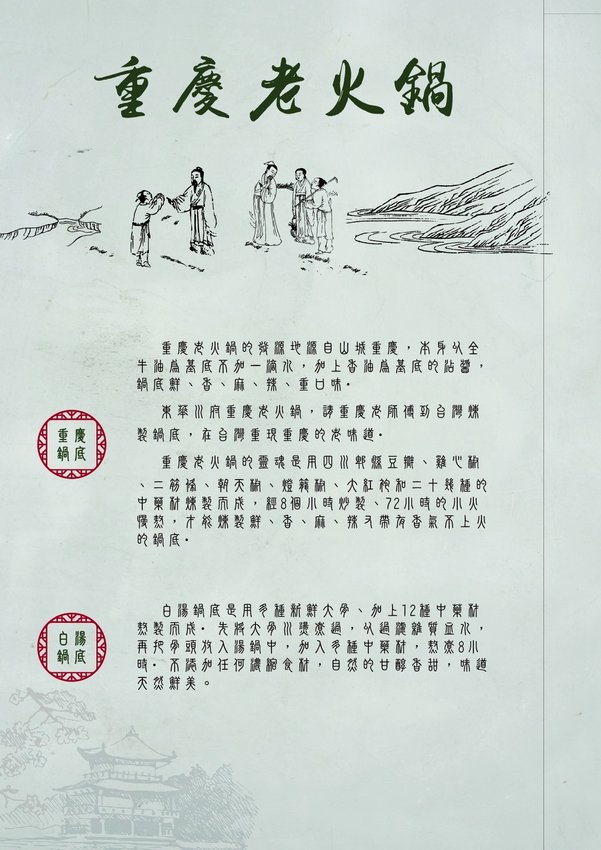 重慶老火鍋
重慶老火鍋的發源地源自山城重慶，本身以全
牛油為基底不加一滴水，加上香油為基底的沾醬，
鍋底鮮、香、麻、辣、重口味。
東華川府重慶老火鍋，請重慶老師傅到台灣煉
製鍋底，在台灣重現重慶的老味道。
重慶
鍋底
重慶老火鍋的靈魂是用四川郫縣豆瓣、雞心椒
、二筋條、朝天椒、燈籠椒、大紅袍和二十幾種的
中藥材煉製而成，經8個小時炒製、72小時的小火
慢熬，才能煉製鮮、香、麻、辣又帶有香氣不上火
的鍋底。
白湯
鍋底
白湯鍋底是用多種新鮮大骨、加上12種中藥材
熬製而成。先將大骨川燙熬過，以過濾雜質血水，
再把骨頭放入湯鍋中，加入多種中藥材，熬煮8小
時。不添加任何濃縮食材，自然的甘醇香甜，味道
天然鮮美。